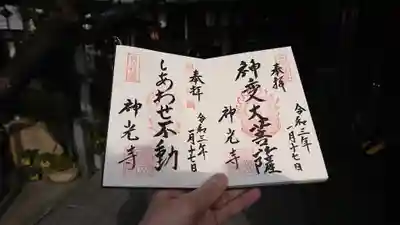 奉拝
神変大菩薩
神光寺
令和三年
一月十七日
奉拝
しあわせ不動
神光寺
令和三年
一月十七日